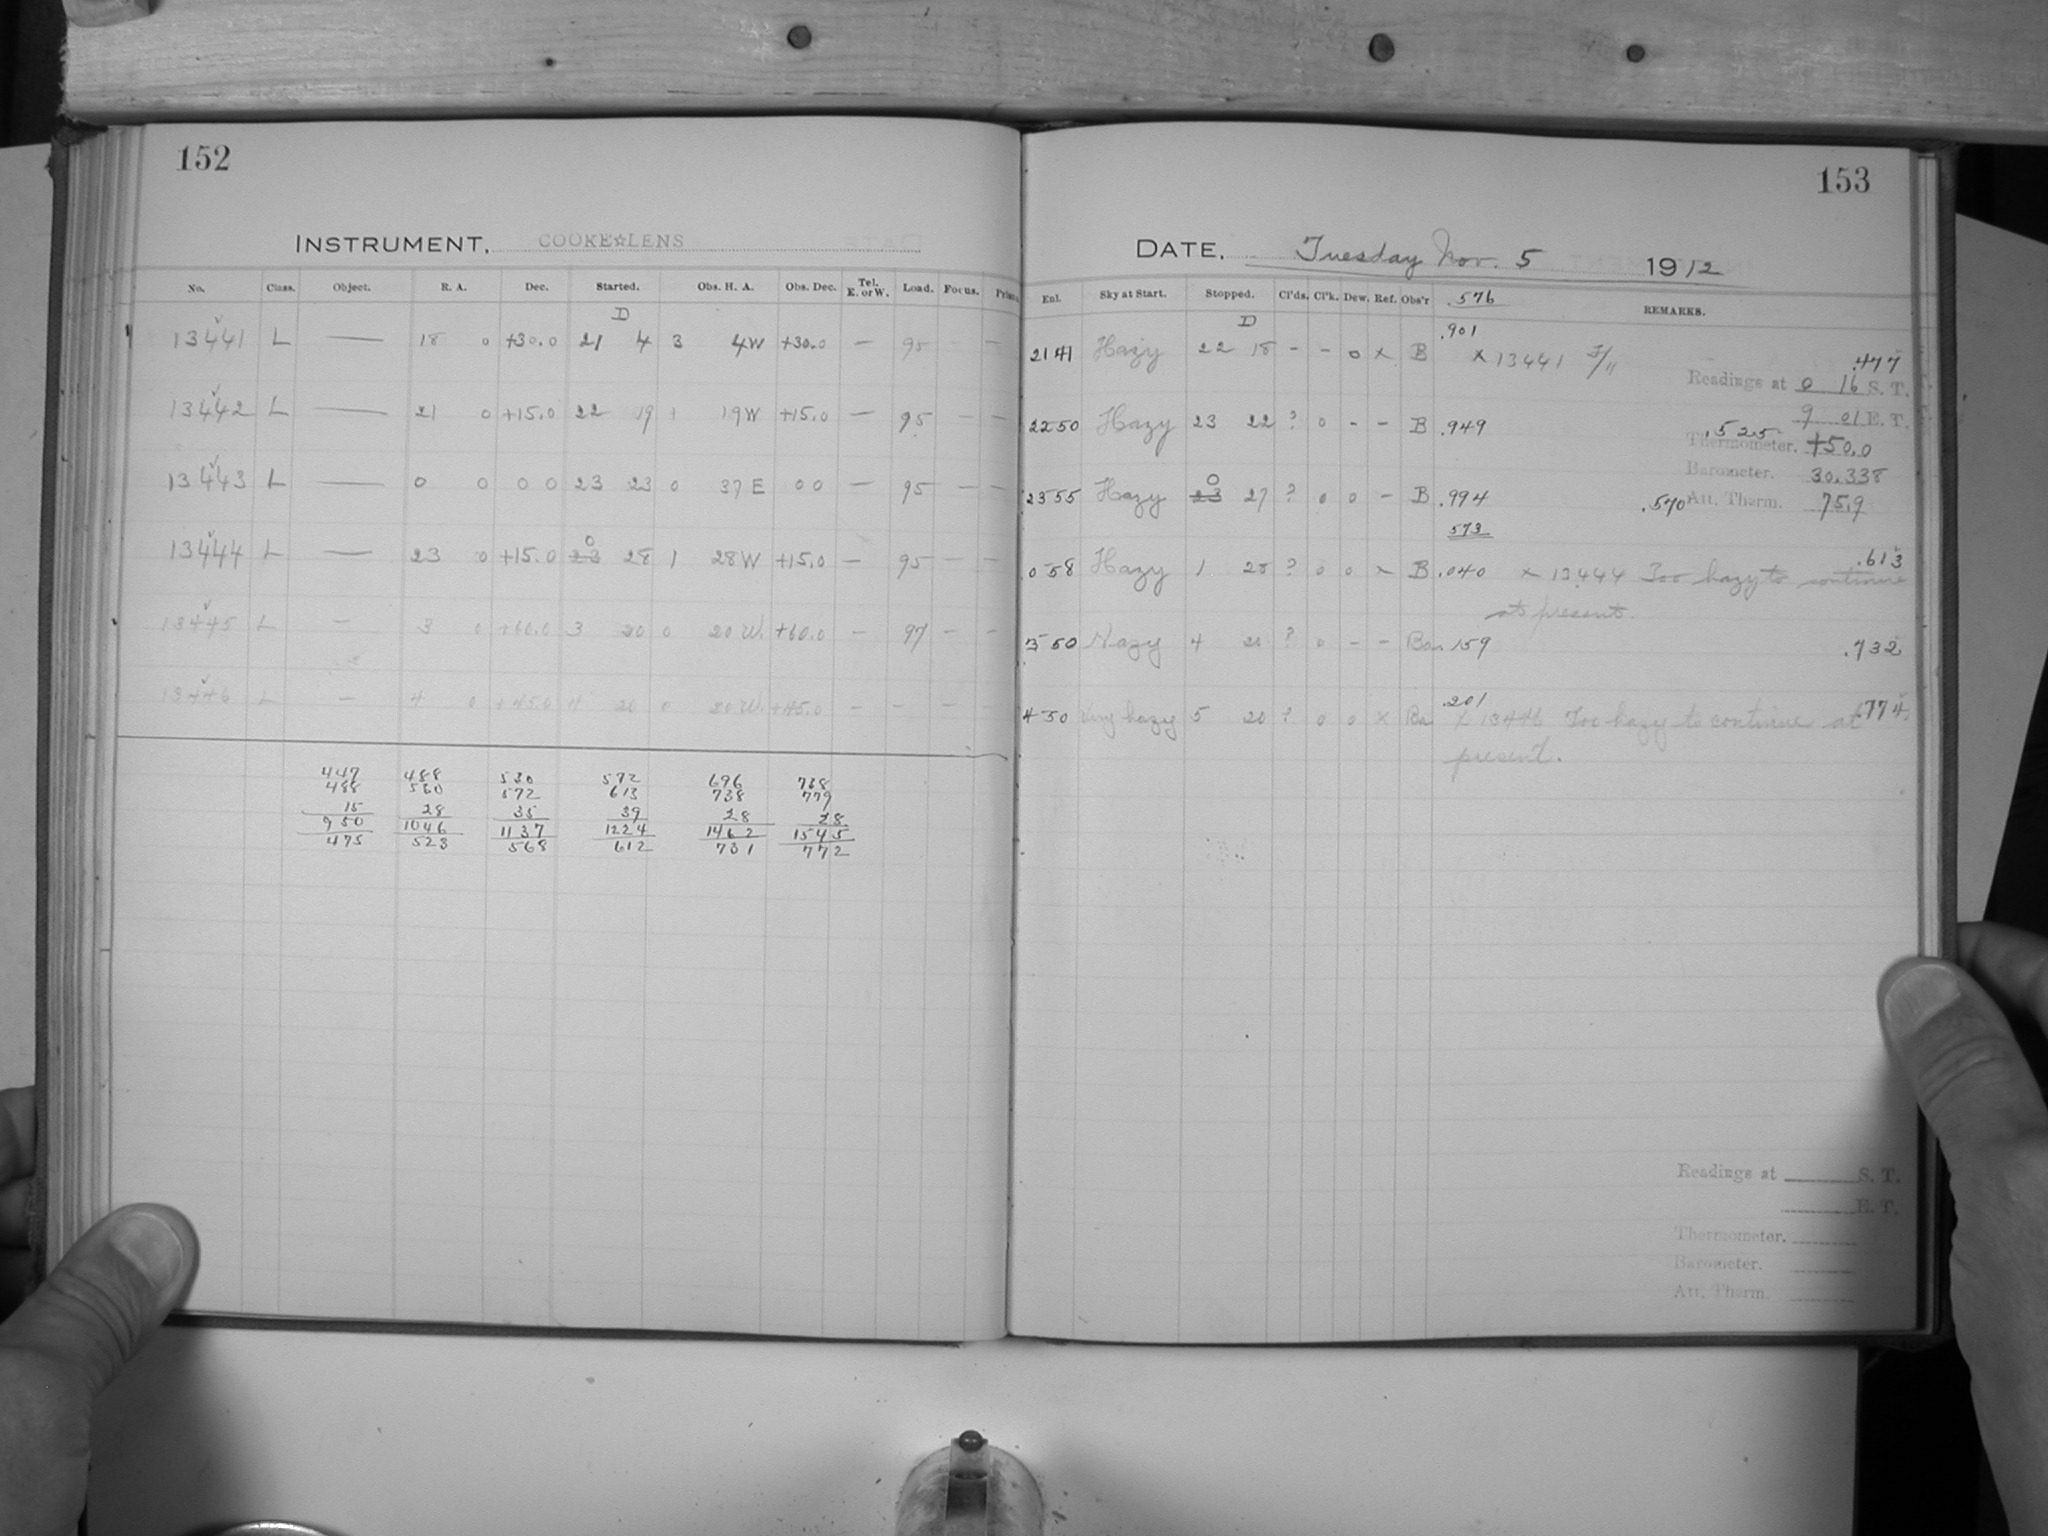 152
INSTRUMENT, COOKE☆LENS
No. Class. Object. R. A. Dec. Started. Obs. H. A. Obs. Dec. Tel. E. or W. Load. Focus.
D
13441 L — 18 0 +30.0 21 4 3 4W +30.0 — 95 — —
13442 L — 21 0 +15.0 22 19 1 19W +15.0 — 95 — —
13443 L — 0 0 0 0 23 23 0 37 E 0 0 — 95 — —
0
13444 L — 23 0 +15.0 23 28 1 28W +15.0 — 95 — —
13445 L — 3 0 +60.0 3 20 0 20 W. +60.0 — 97 — —
13446 L — 4 0 +45.0 4 20 0 20 W. +45.0 — — — —
447 488 530 572 696 738
488 560 572 613 738 779
15 28 35 39 28 28
950 1046 1137 1224 1462 1545
475 523 568 612 731 772
153
DATE, Tuesday Nov. 5 1912
Enl. Sky at Start. Stopped. Cl'ds. Cl'k. Dew. Ref. Obs'r .576 REMARKS.
D .901
21 41 Hazy 22 18 - - 0 x B x 13441 .477
Readings at 0 16 S. T.
9 01 E. T.
22 50 Hazy 23 22 ? 0 - - B .949 .525
Thermometer. +50.0
Barometer. 30.338
0
23 55 Hazy 23 27 ? 0 0 - B .994 .570
Att. Therm. 75.9
573
0 58 Hazy 1 28 ? 0 0 x B .040 x 13444 Too hazy to continue .613
at present.
3 50 Hazy 4 20 ? 0 - - Ba .159 .732
.201
4 50 Very hazy 5 20 ? 0 0 x Ba x 13446 Too hazy to continue at .774
present.
Readings at S. T.
E. T.
Thermometer.
Barometer.
Att. Therm.